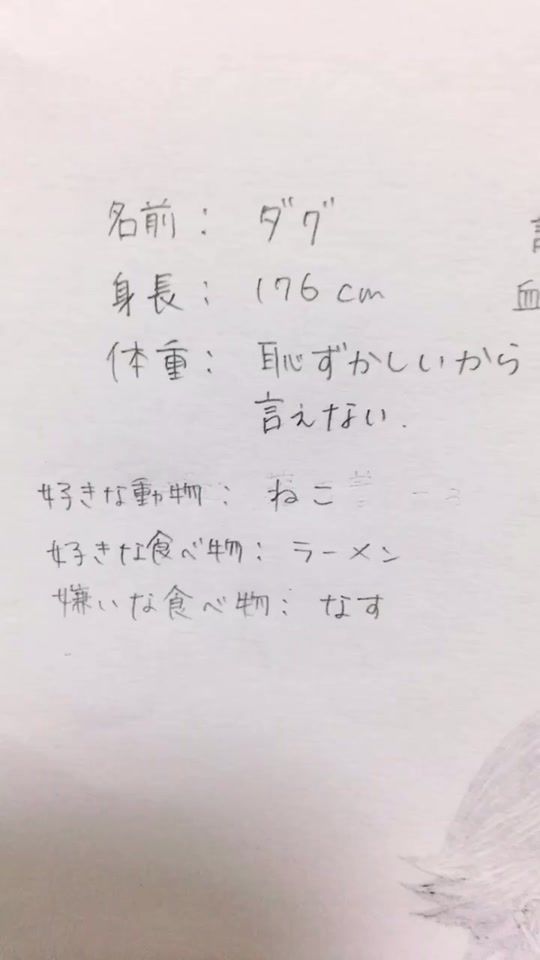 名前： ダグ
身長： 176 cm
体重： 恥ずかしいから
言えない.
好きな動物： ねこ
好きな食べ物： ラーメン
嫌いな食べ物： なす
血